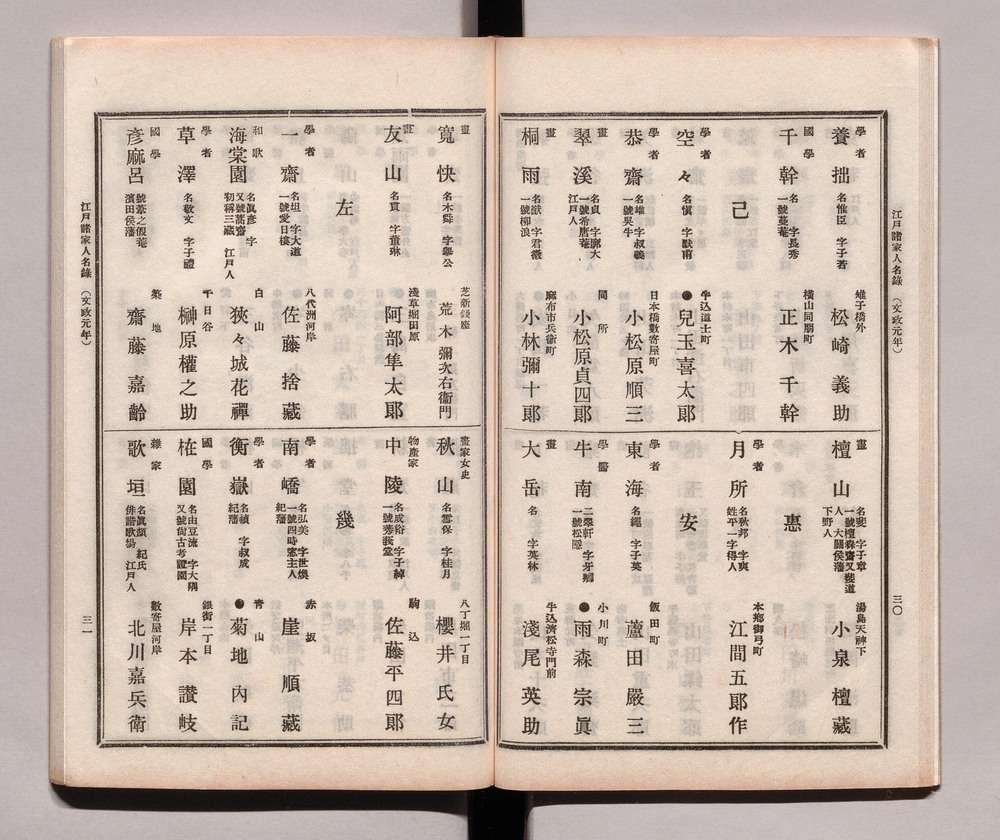 江戸諸家人名錄 (文政元年)
三〇
學者
養拙 名惟臣 字子若
雉子橋外
松崎義助
國學
千幹 名 字長秀
一號蔓菴
橫山同朋町
正木千幹
己
學者
空々 名愼 字默甫
牛込道士町
●兒玉喜太郎
學者
恭齋 名雄 字叔義
一號果牛
日本橋數寄屋町
小松原順三
畫
翠溪 名貞 字廓大
一號希唐菴
江戸人
同所
小松原貞四郎
畫
桐雨 字君徵
一號柳浪
麻布市兵衞町
小林彌十郎
畫
檀山 名斐 字子章
一號檀森齋又斐道
人 大關侯藩
下野人
湯島天神下
小泉檀藏
惠
學者
月所 名秋邦 字爽
姓平一字得人
本鄉御弓町
江間五郎作
安
學者
東海 名繩 字子英
飯田町
蘆田嚴三
學醫
牛南 二翠軒 字牙卿
一號松隱
小川町
●雨森宗眞
畫
大岳 名 字英林
牛込濟松寺門前
淺尾英助
畫
寬快 名木舜 字擧公
芝新錢座
荒木彌次右衞門
畫
友山 名寬 字董琳
淺草堀田原
阿部隼太郎
左
學者
一齋 名坦 字大道
一號愛日樓
八代洲河岸
佐藤捨藏
和歌
海棠園 名眞彥 字
又號萬齋
初稱三藏 江戸人
白山
狹々城花禪
學者
草澤 名敬文 字子禮
千日谷
榊原權之助
國學
彥麻呂 號葦之假菴
濱田侯藩
築地
齋藤嘉齡
畫家女史
秋山 名雪保 字桂月
八丁堀一丁目
櫻井氏女
物產家
中陵 名成裕 字子綽
駒込
佐藤平四郎
幾
學者
南嶠 名弘美 字世煥
一號四時窓主人
紀藩
赤坂
崖順藏
學者
衡嶽 名禎 字叔成
紀藩
青山
●菊地內記
國學
𣑥園 名由豆流 字大隅
又號尙古考證閣
銀街一丁目
岸本讃岐
雜家
歌垣 名眞顏 紀氏
俳諧歌場 江戸人
數寄屋河岸
北川嘉兵衞
江戸諸家人名錄 (文政元年)
三一